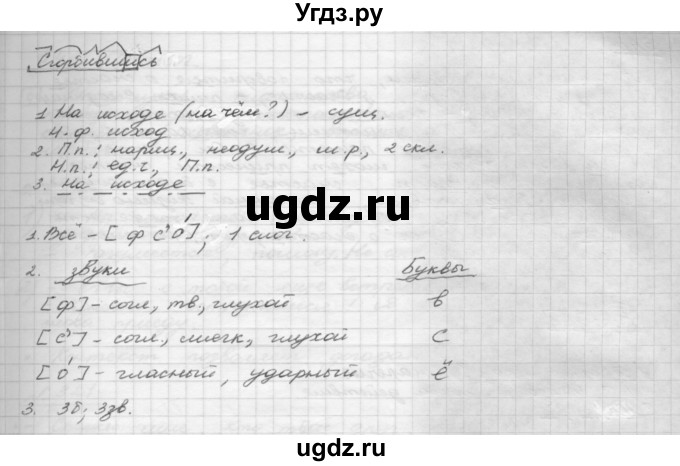 Угдз.ру
Сгорбившись
1. На исходе (на чём?) – сущ.
Н.ф. исход
2. П.п.: нариц., неодуш., м.р., 2 скл.
Н.п.: ед.ч., П.п.
3. На исходе
1. Всё – [ф с' о́]; 1 слог.
2. звуки Буквы
[ф] – согл., тв., глухой в
[с'] – согл., мягк., глухой с
[о́] – гласный, ударный ё
3. 3б; 3зв.
ugdz.ru
ugdz.ru
ugdz.ru